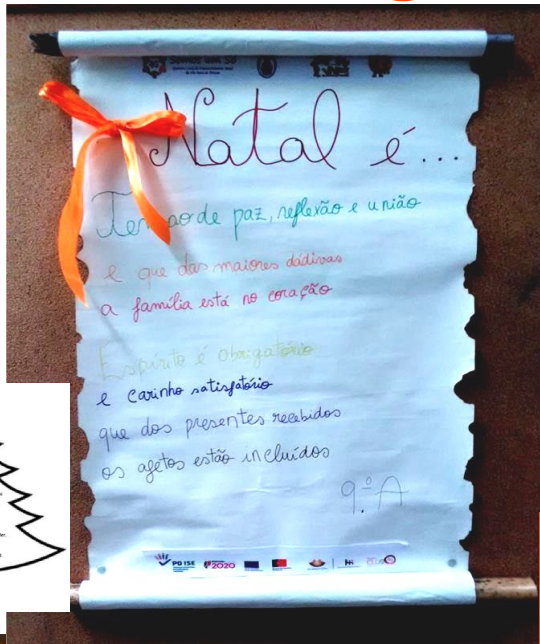 Somos um só
Natal é...
de paz, reflexão e união
e que das maiores dádivas
a família está no coração
Espírito é obrigatório
e carinho satisfatório
que dos presentes recebidos
os afetos estão incluídos
9.º A
PO ISE
2020